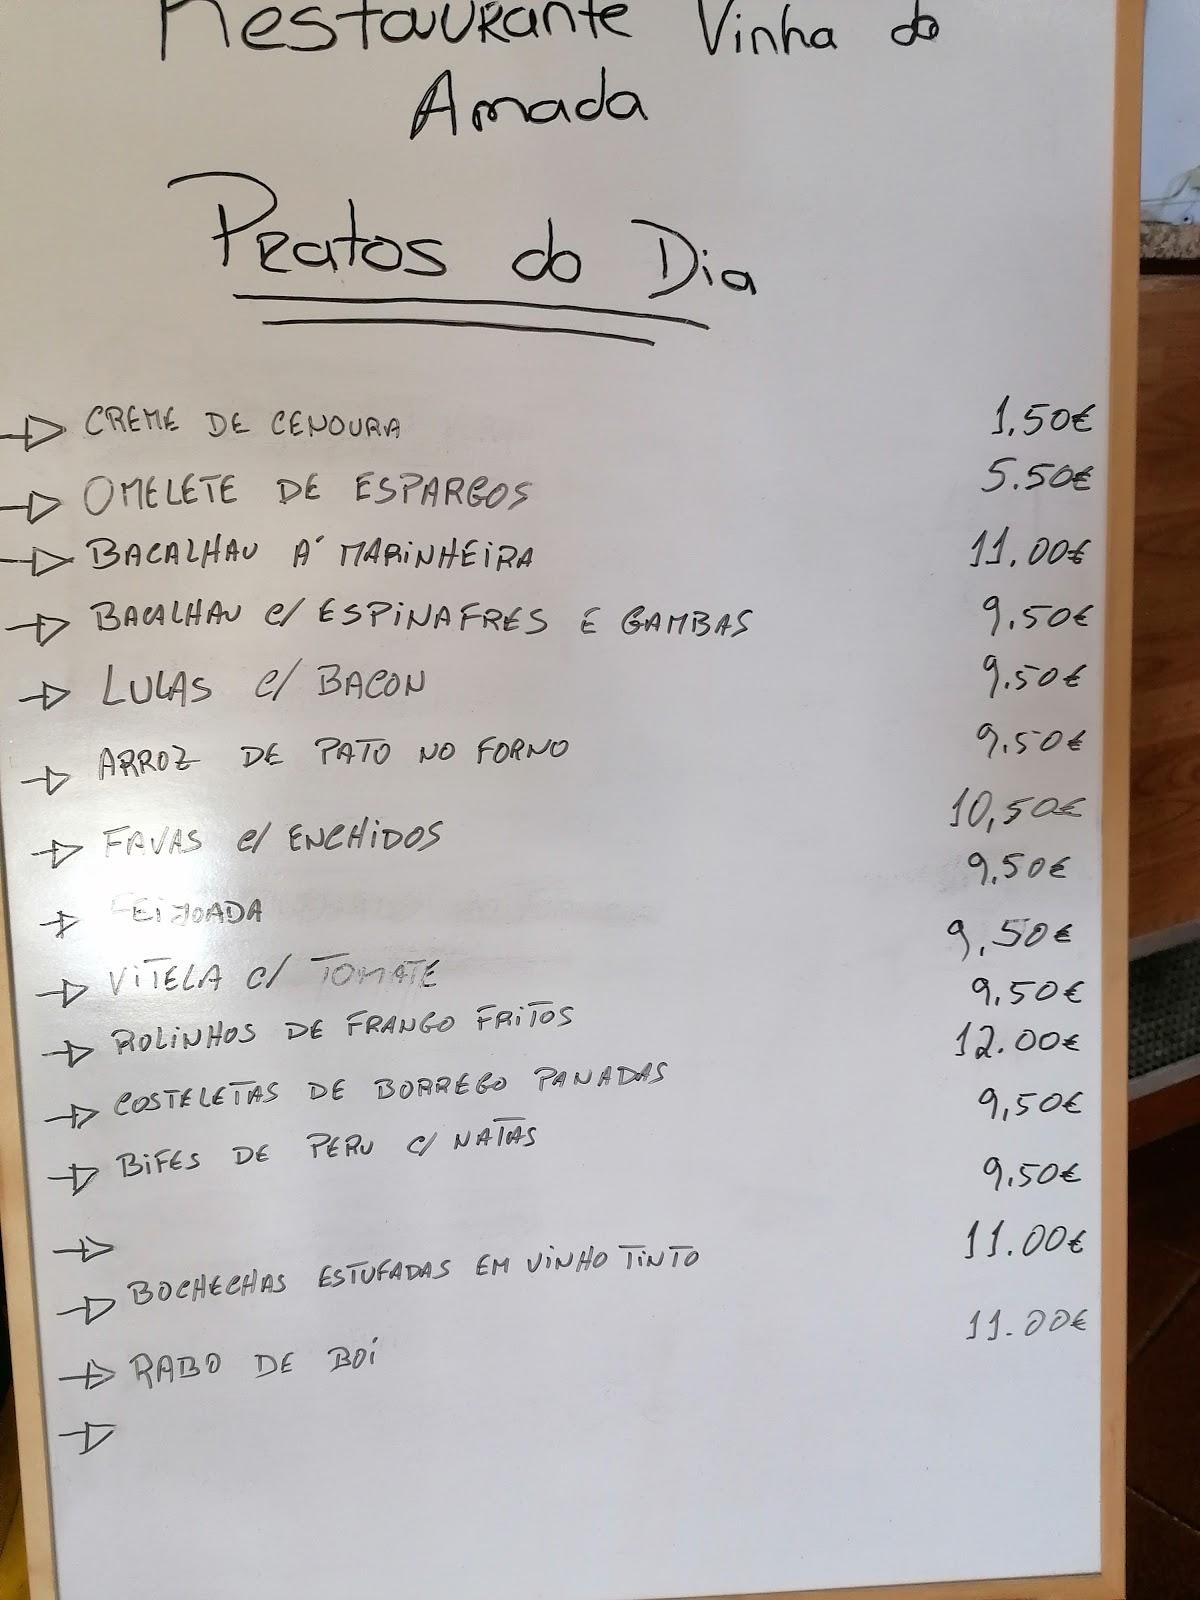 Restaurante Vinha do
Amada
Pratos do Dia
CREME DE CENOURA 1,50€
OMELETE DE ESPARGOS 5.50€
BACALHAU A' MARINHEIRA 11.00€
BACALHAU C/ ESPINAFRES E GAMBAS 9.50€
LULAS C/ BACON 9.50€
ARROZ DE PATO NO FORNO 9.50€
FAVAS C/ ENCHIDOS 10,50€
FEIJOADA 9.50€
VITELA C/ TOMATE 9,50€
ROLINHOS DE FRANGO FRITOS 9.50€
COSTELETAS DE BORREGO PANADAS 12.00€
BIFES DE PERU C/ NATAS 9,50€
9.50€
BOCHECHAS ESTUFADAS EM VINHO TINTO 11.00€
RABO DE BOI 11.00€